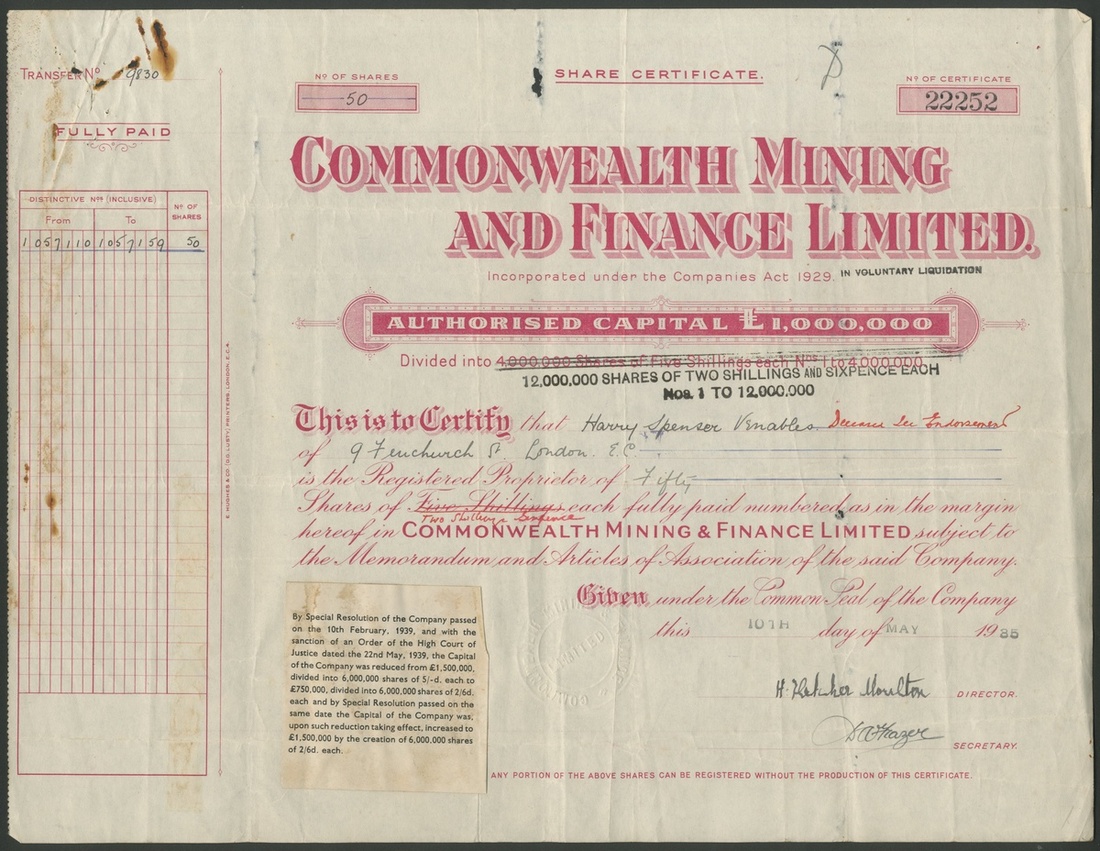 TRANSFER No 9830
FULLY PAID
DISTINCTIVE Nos (INCLUSIVE)
No OF SHARES
From To
1057110 1057159 50
E. HUGHES & CO (O.G. LUSTY) PRINTERS, LONDON, E.C.4.
No OF SHARES
50
SHARE CERTIFICATE.
No OF CERTIFICATE
22252
COMMONWEALTH MINING
AND FINANCE LIMITED.
Incorporated under the Companies Act 1929. IN VOLUNTARY LIQUIDATION
AUTHORISED CAPITAL £1,000,000
Divided into 4,000,000 Shares of Five Shillings each Nos 1 to 4,000,000
12,000,000 SHARES OF TWO SHILLINGS AND SIXPENCE EACH
Nos. 1 TO 12,000,000
This is to Certify that Harry Spenser Venables Deceased See Endorsement
of 9 Fenchurch St. London. E.C
is the Registered Proprietor of Fifty
Shares of Five Shillings each fully paid numbered as in the margin
Two Shillings Sixpence
hereof in COMMONWEALTH MINING & FINANCE LIMITED subject to
the Memorandum and Articles of Association of the said Company.
Given under the Common Seal of the Company
this 10TH day of MAY 1935
H. Fletcher Moulton DIRECTOR.
D A Frazer SECRETARY.
By Special Resolution of the Company passed
on the 10th February, 1939, and with the
sanction of an Order of the High Court of
Justice dated the 22nd May, 1939, the Capital
of the Company was reduced from £1,500,000,
divided into 6,000,000 shares of 5/-d. each to
£750,000, divided into 6,000,000 shares of 2/6d.
each and by Special Resolution passed on the
same date the Capital of the Company was,
upon such reduction taking effect, increased to
£1,500,000 by the creation of 6,000,000 shares
of 2/6d. each.
ANY PORTION OF THE ABOVE SHARES CAN BE REGISTERED WITHOUT THE PRODUCTION OF THIS CERTIFICATE.